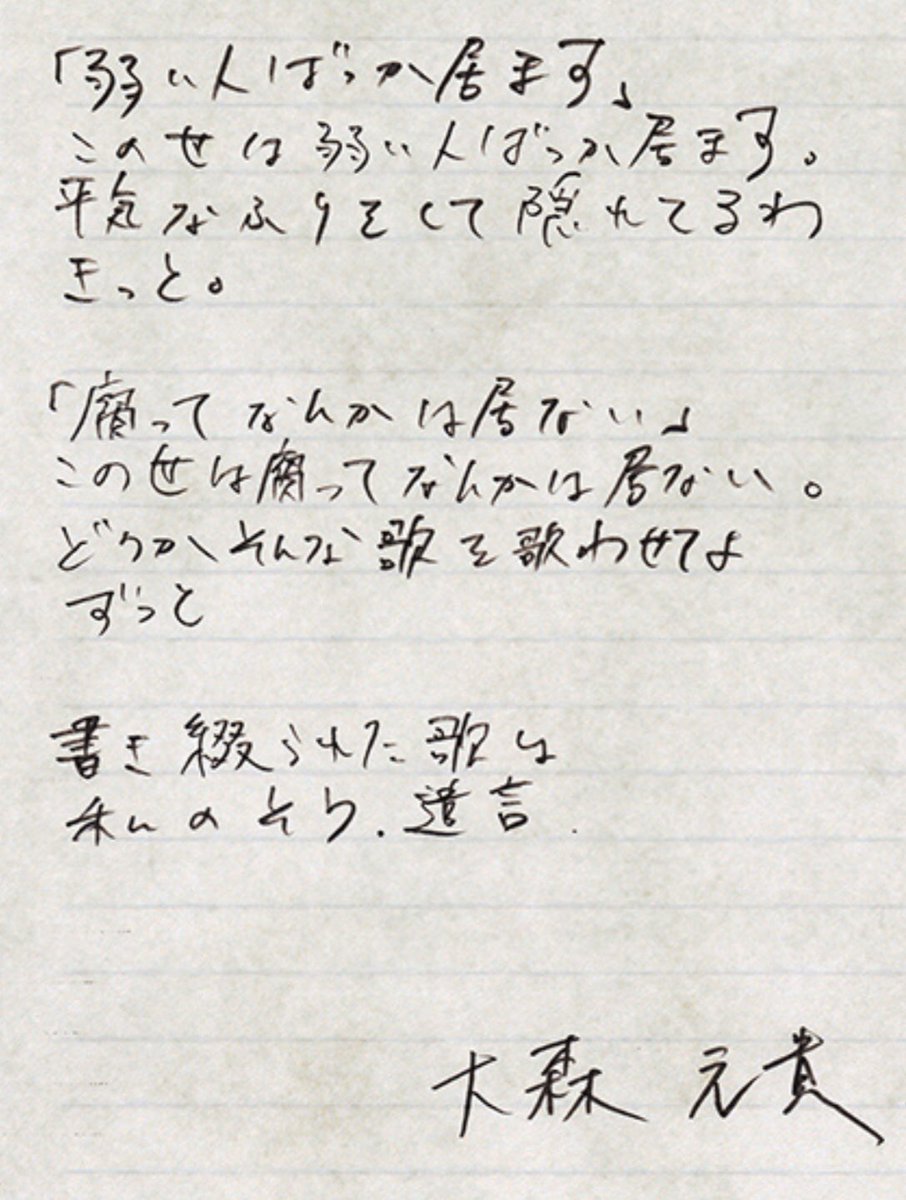 「弱い人ばっか居ます」
この世は弱い人ばっか居ます。
平気なふりをして隠れてるわ
きっと。
「腐ってなんかは居ない」
この世は腐ってなんかは居ない。
どうかそんな歌を歌わせてよ
ずっと
書き綴られた歌は
私のそう.遺言.
大森 元貴